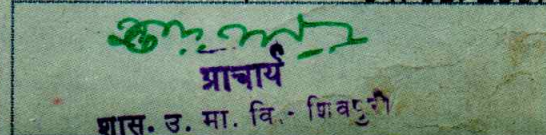 प्राचार्य
शास. उ. मा. वि.- शिवपुरी